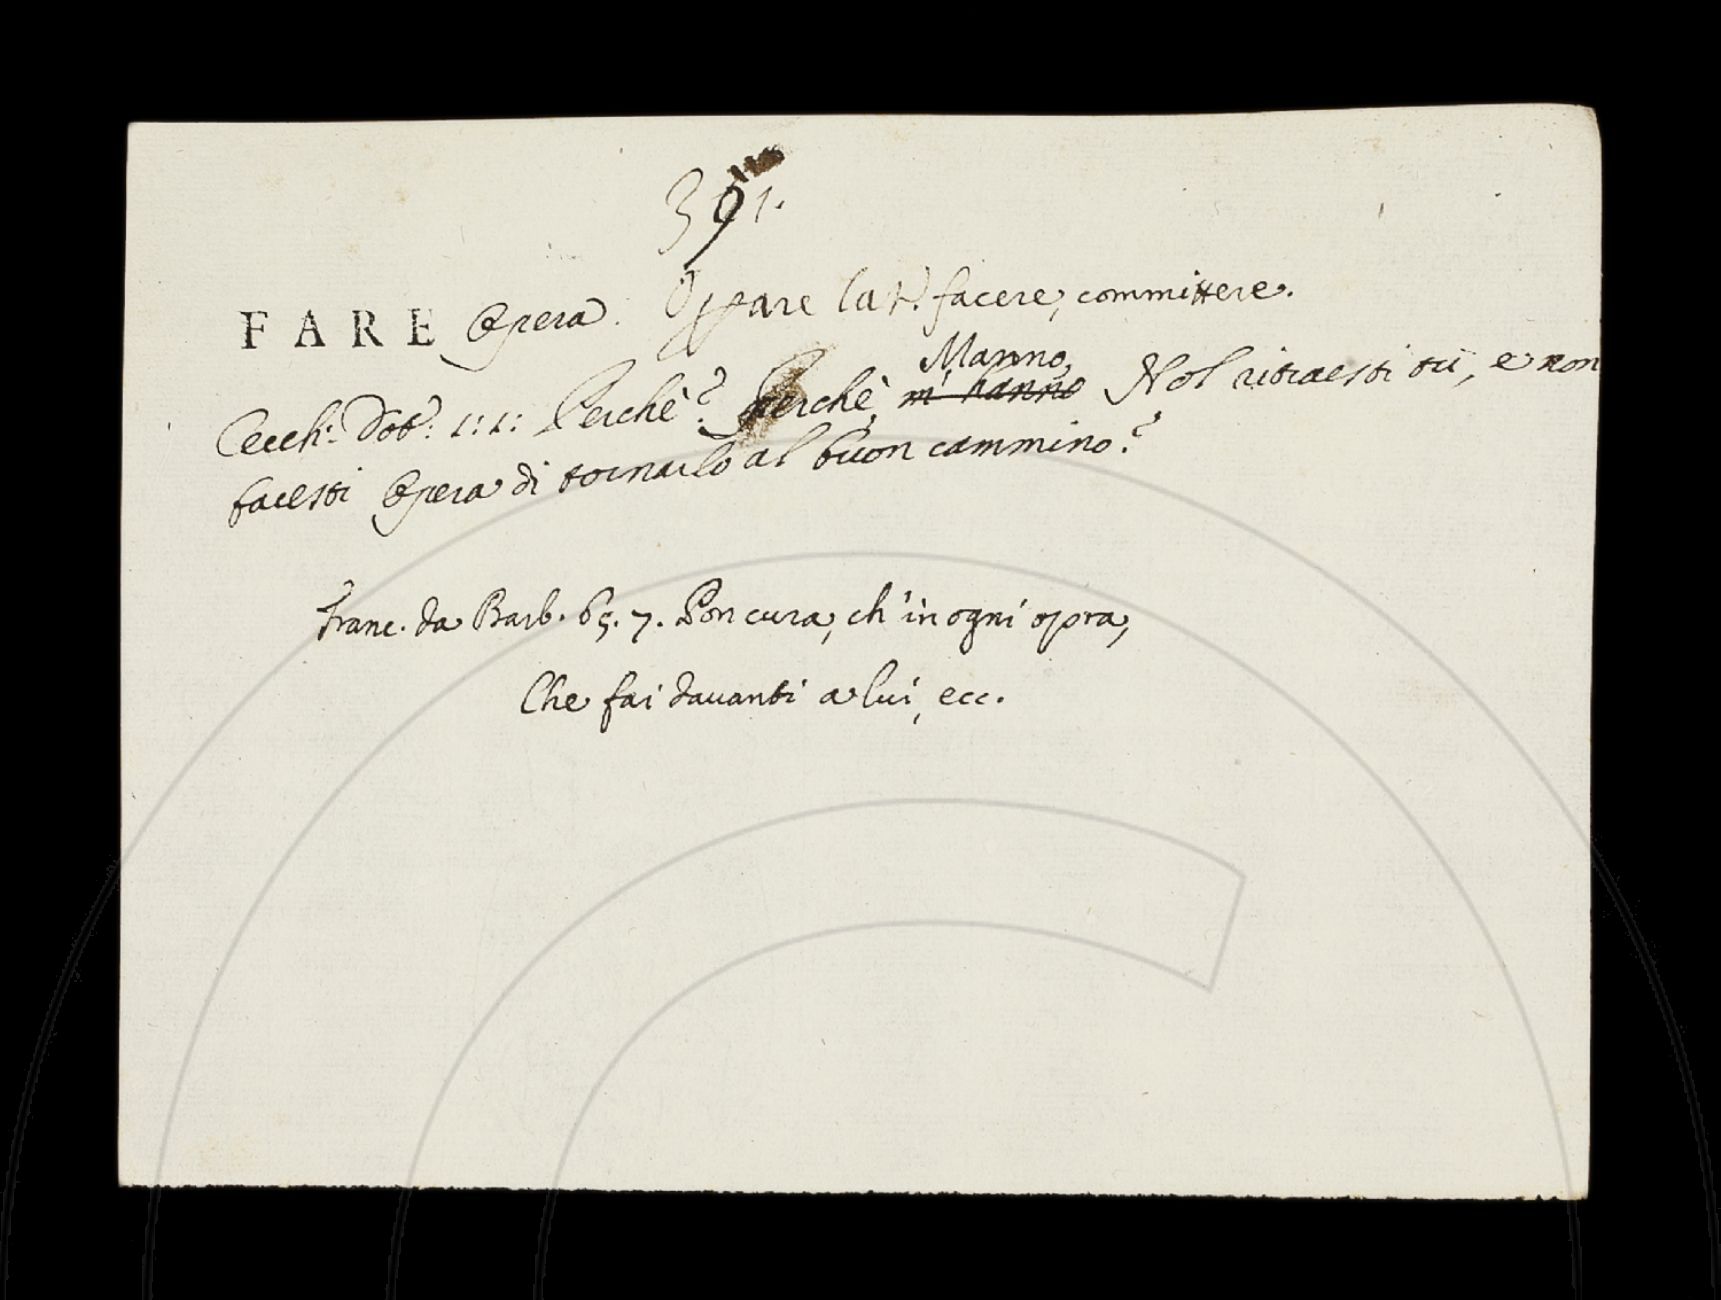 391.
FARE Opera. Oprare lat. facere, committere.
Manno,
Cecch: Dot: 1: 1: Perchè? Perchè, m' hanno Nol ritraesti tù, e non
facesti Opera di tornarlo al buon cammino?
Franc. da Barb. 65. 7. Pon cura, ch' in ogni opra,
Che fai davanti a lui, ecc.